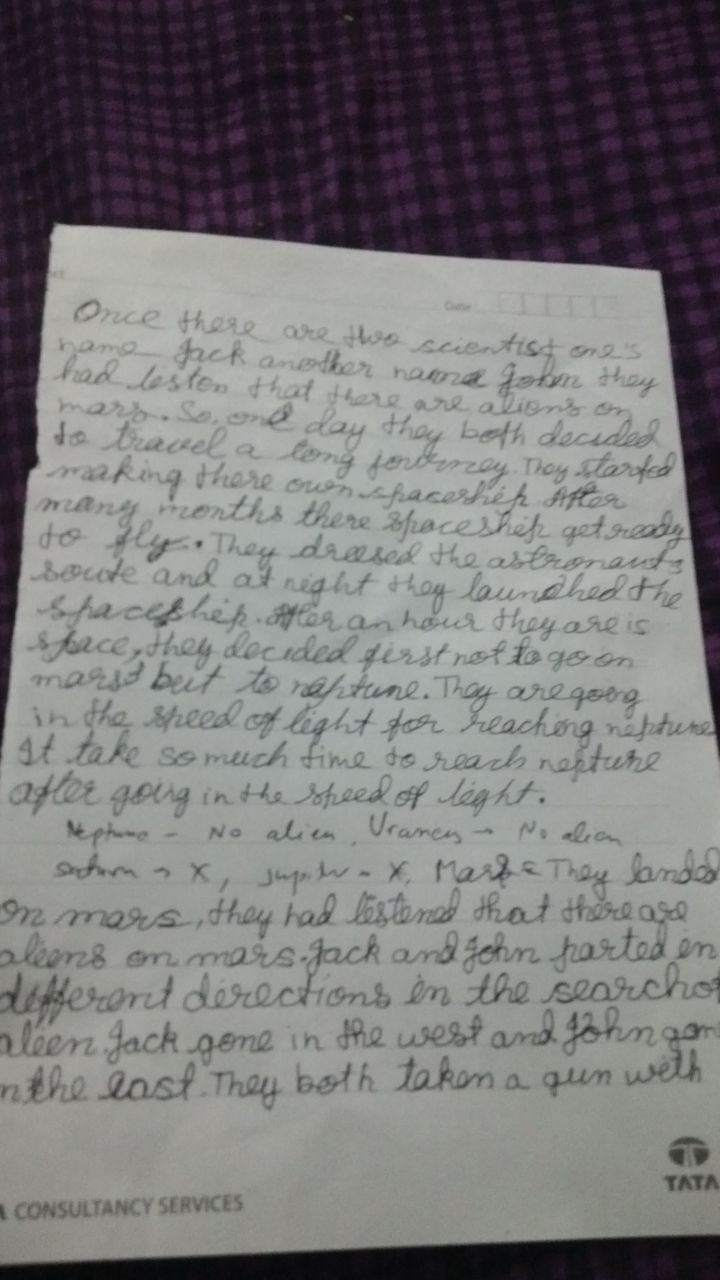 Date
Once there are two scientist one's
name Jack another name John they
had leston that there are aliens on
mars. So, one day they both decided
to travel a long journey. They started
making there own spaceship After
many months there spaceship get ready
to fly. They dressed the astronauts
soute and at night they launched the
spaceship. After an hour they are is
space, they decided first not to go on
mars but to neptune. They are going
in the speed of light for reaching neptune
It take so much time to reach nepture
after going in the speed of light.
Neptune - No alien, Uranus → No alien
saturn → X, jupiter - X, Mars = They landed
on mars, they had listened that there are
aliens on mars. Jack and John parted in
different directions in the search of
alien. Jack gone in the west and John gon
n the east. They both taken a gun with
A CONSULTANCY SERVICES
TATA